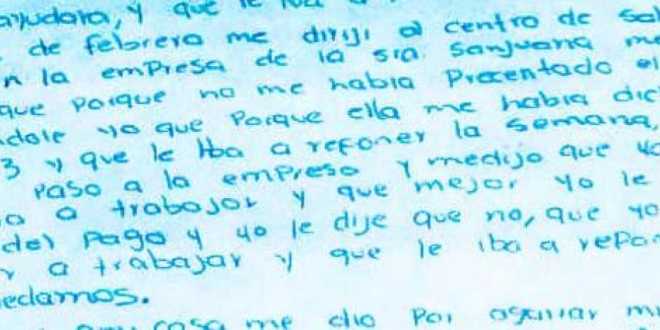 ayudara, y que le
de febrero me diriji al centro de sal
n la empresa de la sra. Sanjuana me
que porque no me habia Precentado el
dole yo que Porque ella me habia dic
3 y que le Iba a refoner la semana,
Paso a la empresa y medijo que yo
o a trabajar y que mejor yo le
del pago y yo le dije que no, que yo
r a trabajar y que le iba a repon
edamos.
casa me dio Por